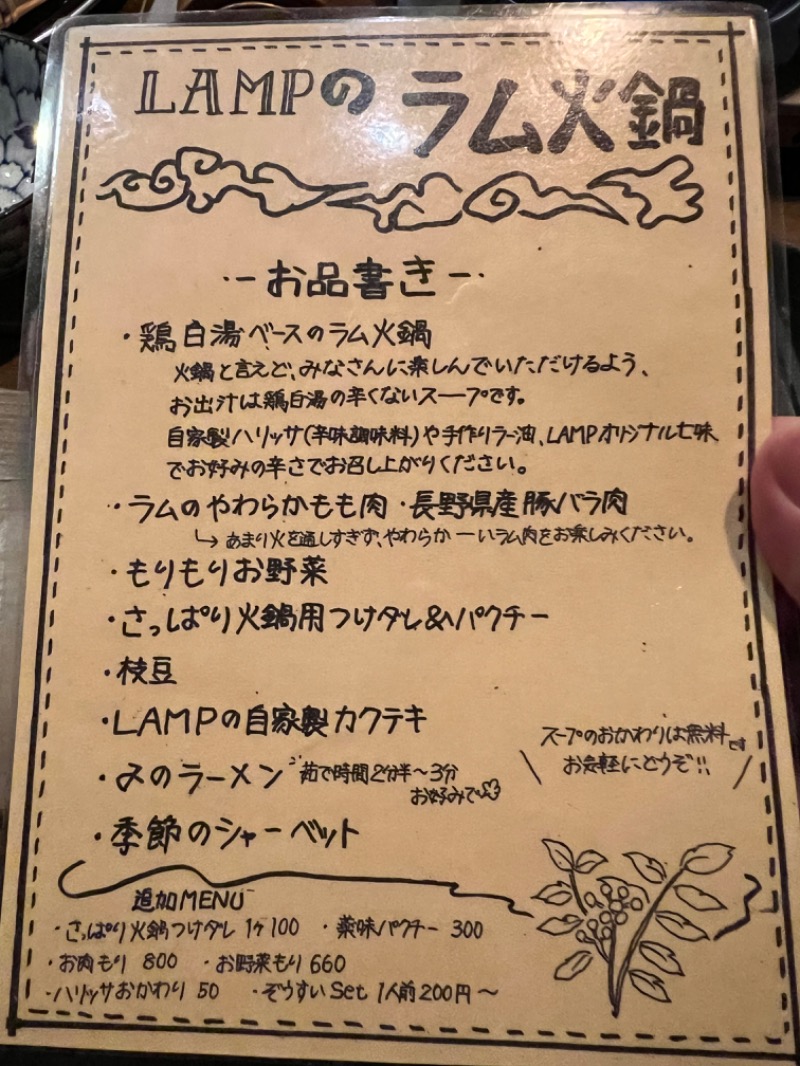 LAMPの ラム火鍋
-お品書き-
・鶏白湯ベースのラム火鍋
火鍋と言えど、みなさんに楽しんでいただけるよう、
お出汁は鶏白湯の辛くないスープです。
自家製ハリッサ(辛味調味料)や手作りラー油、LAMPオリジナル七味
でお好みの辛さでお召し上がりください。
・ラムのやわらかもも肉 ・長野県産豚バラ肉
↳あまり火を通しすぎず、やわらかーいラム肉をお楽しみください。
・もりもりお野菜
・さっぱり火鍋用つけダレ&パクチー
・枝豆
・LAMPの自家製カクテキ
スープのおかわりは無料です
お気軽にどうぞ!!
・〆のラーメン 茹で時間2分半〜3分
お好みで
・季節のシャーベット
追加MENU
・さっぱり火鍋つけダレ 1ケ100 ・薬味パクチー 300
・お肉もり 800 ・お野菜もり 660
・ハリッサおかわり 50 ・ぞうすいSet 1人前200円〜